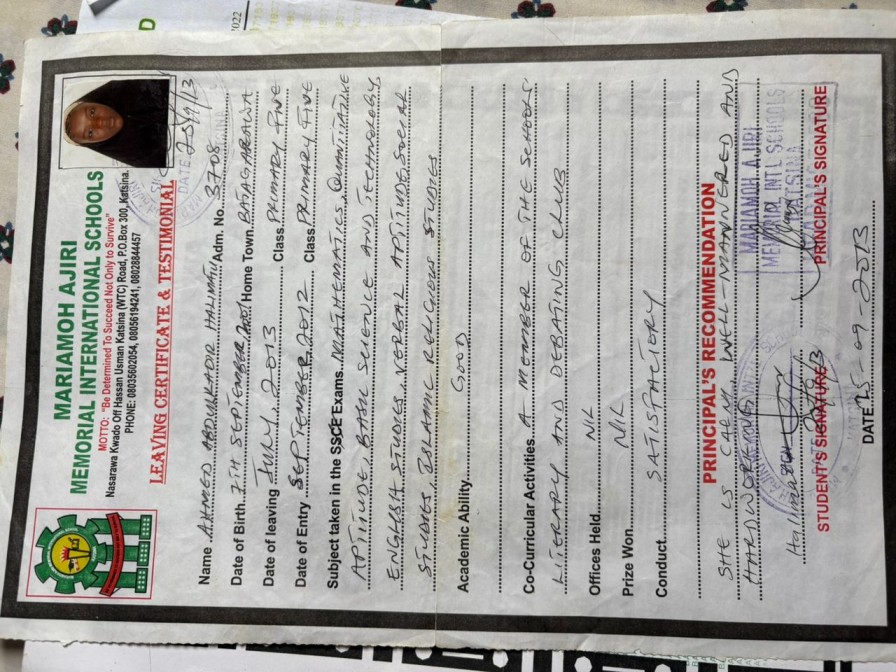 MARIAMOH AJIRI
MEMORIAL INTERNATIONAL SCHOOLS
MOTTO: "Be Determined To Succeed Not Only to Survive"
Nasarawa Kwado Off Hassan Usman Katsina (WTC) Road, P.O.Box 300, Katsina.
PHONE: 08035602054, 08056194241, 08028844457
LEAVING CERTIFICATE & TESTIMONIAL
Name AHMED ABDULKADIR HALIMATU Adm. No. 3708
Date of Birth 7TH SEPTEMBER, Home Town BATAGARAWA
Date of leaving JULY, 2013 Class PRIMARY FIVE
Date of Entry SEPTEMBER, 2012 Class PRIMARY FIVE
Subject taken in the SSCE Exams. MATHEMATICS, QUANTITATIVE
APTITUDE, BASIC SCIENCE AND TECHNOLOGY,
ENGLISH STUDIES, VERBAL APTITUDE, SOCIAL
STUDIES, ISLAMIC RELIGIOUS STUDIES
Academic Ability GOOD
Co-Curricular Activities A MEMBER OF THE SCHOOLS'
LITERARY AND DEBATING CLUB
Offices Held NIL
Prize Won. NIL
Conduct. SATISFACTORY
PRINCIPAL'S RECOMMENDATION
SHE IS CALM, WELL-MANNERED AND
HARDWORKING
MARIAMOH AJIRI
MEMORIAL INT'L SCHOOLS
KATSINA
STUDENT'S SIGNATURE PRINCIPAL'S SIGNATURE
DATE 25-09-2013
2022
D